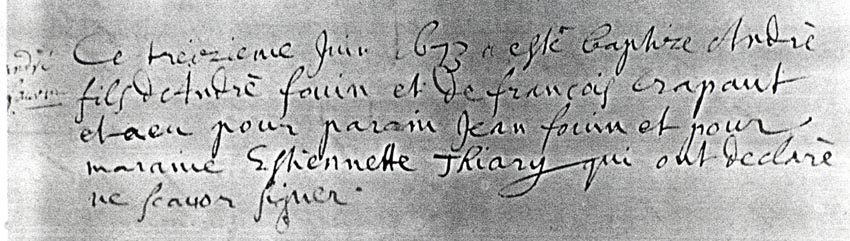 André
Ce treizieme Juin 1673 a esté baptize André
fils de André fouin et de françois Crapaut
et a eu pour parain Jean fouin et pour
maraine Estiennette Thiary qui ont declaré
ne scavoir signer.